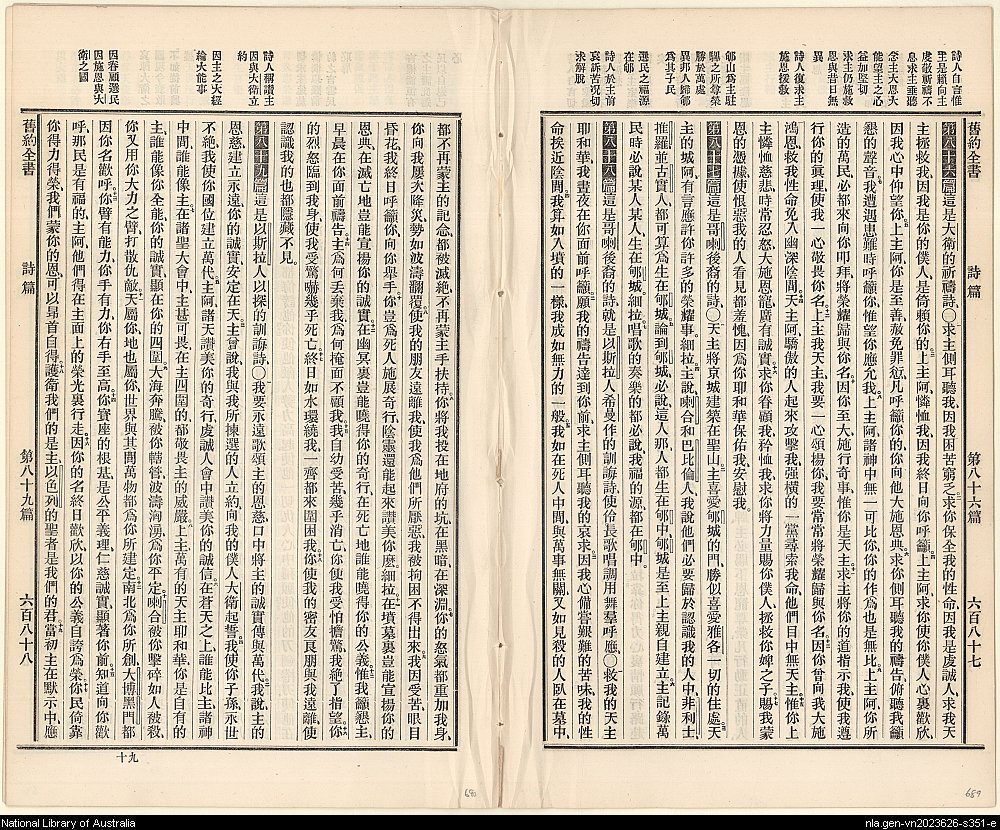 舊約全書
詩篇
第八十六篇
六百八十七
詩人自言惟
主是賴向主
虔敬祈禱不
息求主垂聽
念主大恩大
能望主之心
益加堅切
求主仍施救
恩與昔日無
異
詩人復求主
施恩援救
郇山爲主駐
驆之所尊榮
勝於萬處
異邦人歸郇
爲其子民
選民之福源
在郇
詩人於主前
哀訴苦况切
求解脫
第八十六篇 這是大衛的祈禱詩、〇求主側耳聽我、因我困苦窮乏、求你保全我的性命、因我是虔誠人、求我天
主拯救我、因我是你的僕人、是倚賴你的、上主阿、憐恤我、因我終日向你呼籲、上主阿、求你使你僕人心裏歡欣、
因我心中仰望你、上主阿、你是至善、赦免罪愆、凡呼籲你的、你向他大施恩典、求你側耳聽我的禱告、俯聽我籲
懇的聲音、我遭遇患難時呼籲你、惟望你應允我、上主阿、諸神中無一可比你、你的作爲也是無比、上主阿、你所
造的萬民、必都來向你叩拜、將榮耀歸與你名、因你至大、施行奇事、惟你是天主、求主將你的道指示我、使我遵
行你的眞理、使我一心敬畏你名、上主我天主、我要一心頌揚你、我要常常將榮耀歸與你名、因你曾向我大施
鴻恩、救我性命、免入幽深陰間、天主阿、驕傲的人起來攻擊我、强橫的一黨尋索我命、他們目中無天主、惟你上
主憐恤慈悲、時常忍怒、大施恩寵、廣有誠實、求你眷顧我、矜恤我、求你將力量賜你僕人、拯救你婢之子、賜我蒙
恩的憑據、使恨惡我的人看見、都羞愧、因爲你耶和華保佑我、安慰我。
第八十七篇 這是哥喇後裔的詩、〇天主將京城建築在聖山、主喜愛郇城的門、勝似喜愛雅各一切的住處、天
主的城阿、有言應許你許多的榮耀事、細拉、主說、喇合和巴比倫人、我說他們必要歸於認識我的人中、非利士
推羅並古實人、都可算爲生在郇城、論到郇城、必說這人那人都生在郇中、郇城是至上主親自建立、主記錄萬
民時、必說某人某人生在郇城、細拉、唱歌的奏樂的都必說、我福的源都在郇中。
第八十八篇 這是哥喇後裔的詩、就是以斯拉人希曼作的訓誨詩、使伶長歌唱、調用舞羣呼應、〇救我的天主
耶和華、我晝夜在你面前呼籲、願我的禱告達到你前、求主側耳聽我的哀求、因我心備嘗艱難的苦味、我的性
命挨近陰間、我算如入墳的一樣、我成如無力的一般、我如在死人中間、與萬事無關、又如見殺的人臥在墓中、
舊約全書
詩篇
第八十九篇
六百八十八
詩人稱讚主
因與大衛立
約
因主之大經
綸大能事
因眷顧選民
因施恩與大
衛之國
都不再蒙主的記念、都被滅絕、不再蒙主手扶持、你將我投在地府的坑、在黑暗、在深淵、你的怒氣都重加我身、
你向我屢次降災、勢如波濤翻覆、使我的朋友遠離我、使我爲他們所厭惡、我被拘困不得出來、我因受苦眼目
昏花、我終日呼籲你、向你舉手、你豈爲死人施展奇行、陰靈還能起來讚美你麽、細拉、在墳墓裏豈能宣揚你的
恩典、在滅亡地豈能宣揚你的誠實、在幽冥裏豈能曉得你的奇行、在死亡地誰能曉得你的公義、惟我籲懇主、
早晨在你面前禱告、主爲何丟棄我、爲何掩面不顧我、我自幼受苦、幾乎消亡、你使我受怕擔驚、我絕了指望、你
的烈怒臨到我身、使我受驚嚇幾乎死亡、終日如水環繞我、一齊都來圍困我、你使我的密友良朋與我遠離、使
認識我的也都隱藏不見。
第八十九篇 這是以斯拉人以探的訓誨詩、〇我要永遠歌頌主的恩慈、口中將主的誠實傳與萬代、我說、主的
恩慈建立永遠、你的誠實安定在天、主曾說、我與我所揀選的人立約、向我的僕人大衛起誓、我使你子孫永世
不絕、我使你國位建立萬代、主阿、諸天讚美你的奇行、虔誠人會中讚美你的誠信、在蒼天之上誰能比主、諸神
中間、誰能像主、在諸聖大會中、主甚可畏、在主四圍的、都敬畏主的威嚴、上主萬有的天主耶和華、你是自有的
主、誰能像你全能、你的誠實、顯在你的四圍、大海奔騰、被你轄管、波濤洶湧、爲你平定、喇合被你擊碎、如人被殺、
你又用你大力之臂打散仇敵、天屬你、地也屬你、世界與其間萬物都爲你所建定、南北爲你所創、大博黑門、都
因你名歡呼、你臂有能力、你手有力、你右手至高、你寶座的根基是公平義理、仁慈誠實、顯著你前、知道向你歡
呼、那民是有福的、主阿、他們得在主面上的榮光裏行走、因你的名終日歡欣、以你的公義自誇、爲榮、你民倚靠
你得力得榮、我們蒙你的恩、可以昻首自得、護衛我們的是主、以色列的聖者是我們的君、當初主在默示中、應
十九
680
689
National Library of Australia
nla.gen-vn2023626-s351-e